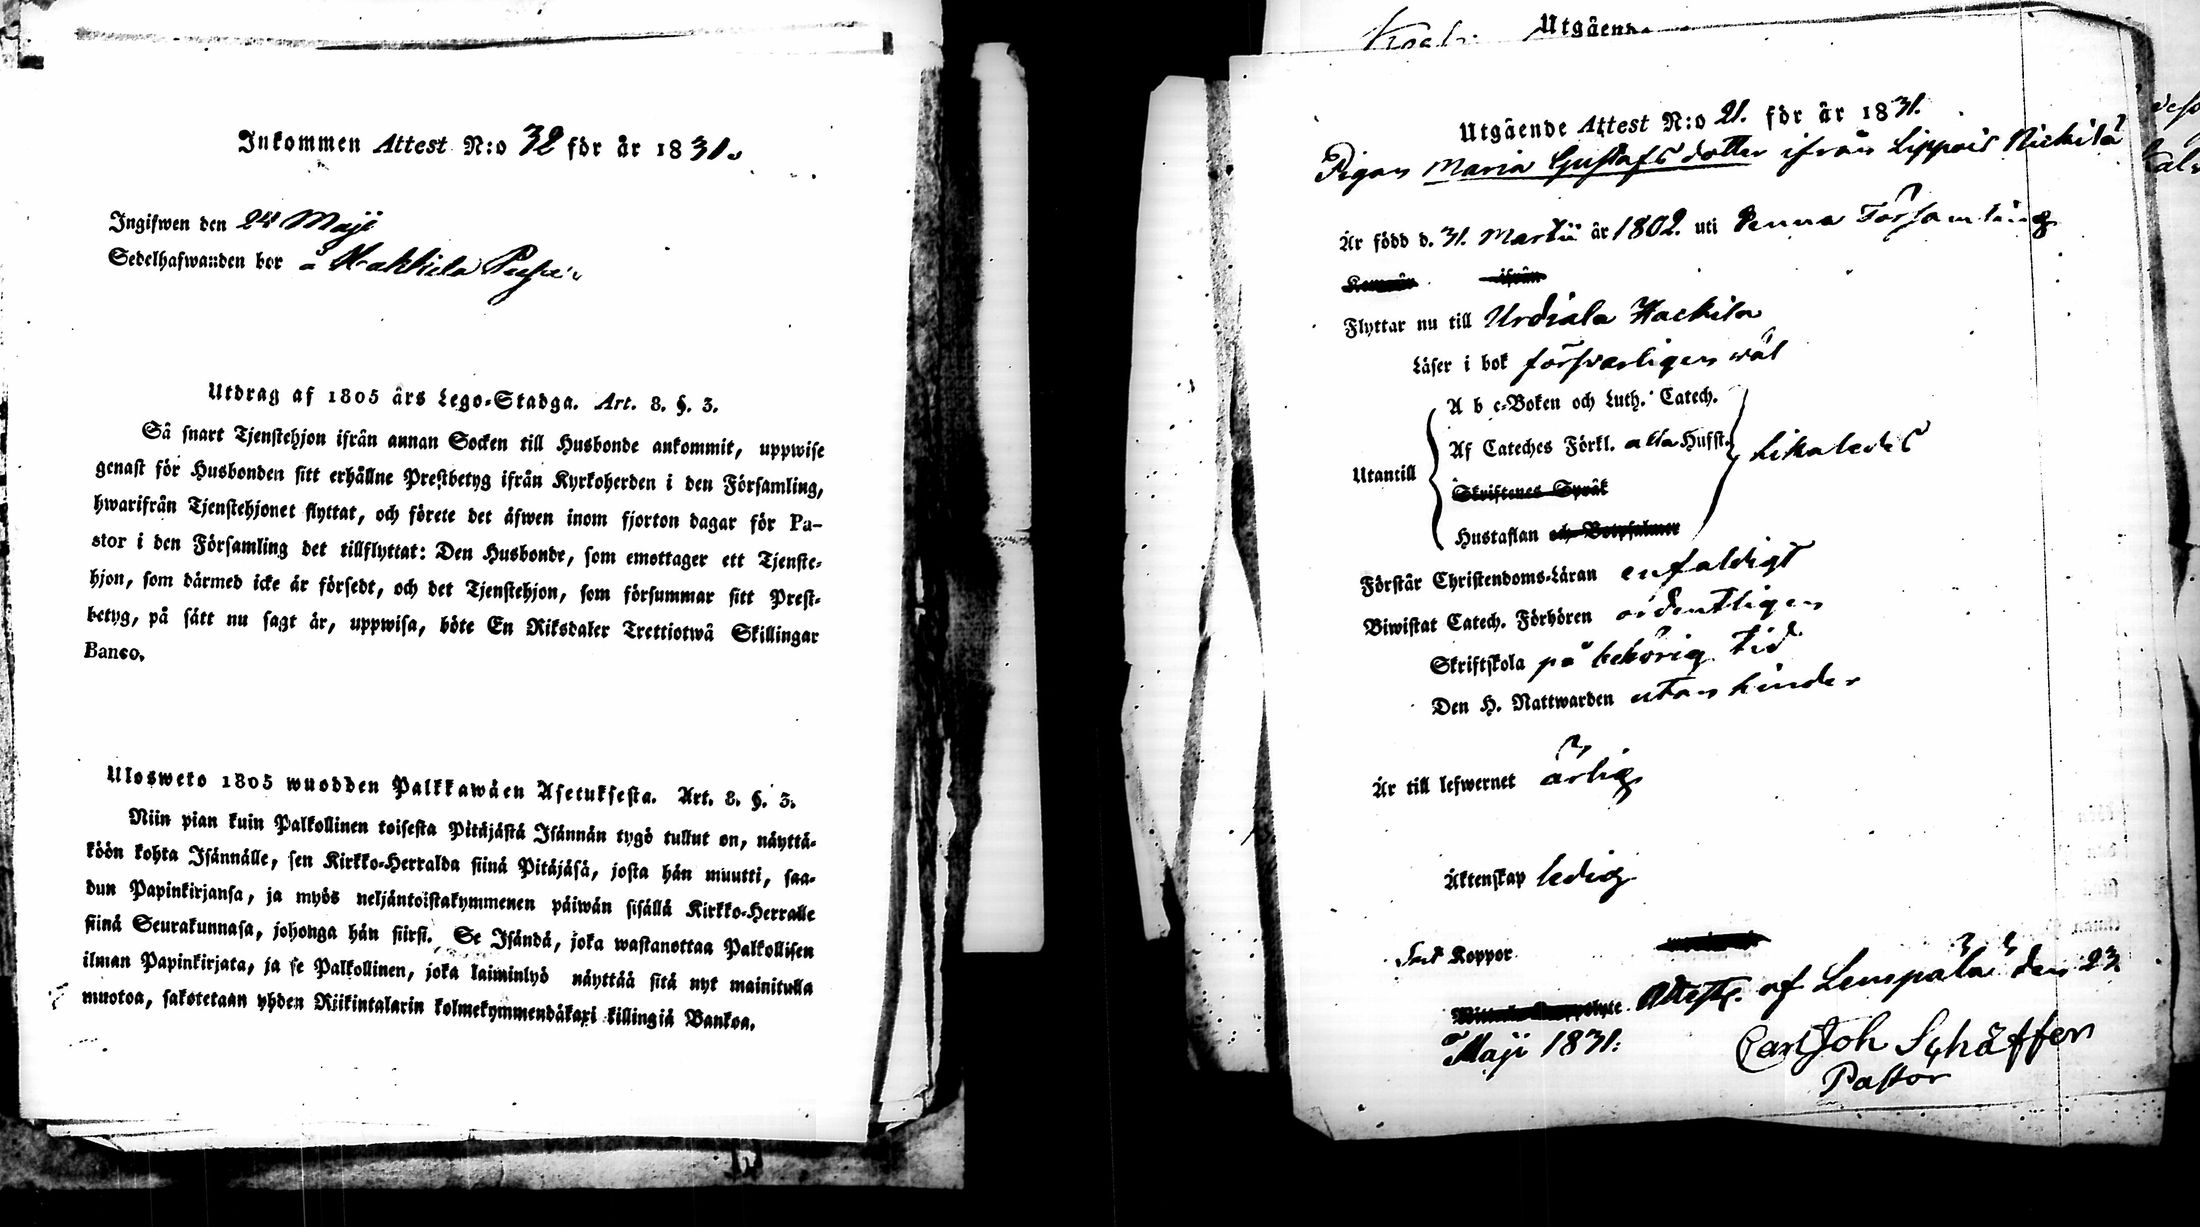 Inkommen Attest N:o 32 för år 1831.
Ingifwen den 24 Maji
Sedelhafwanden bor å Hakkila
Utdrag af 1805 års Lego-Stadga. Art. 8. §. 3.
Så snart Tjenstehjon ifrån annan Socken till Husbonde ankommit, uppwise
genast för Husbonden sitt erhållne Prestbetyg ifrån Kyrkoherden i den Församling,
hwarifrån Tjenstehjonet flyttat, och förete det äfwen inom fjorton dagar för Pa-
stor i den Församling det tillflyttat: Den Husbonde, som emottager ett Tjenste-
hjon, som därmed icke är försedt, och det Tjenstehjon, som försummar sitt Prest-
betyg, på sätt nu sagt är, uppwisa, böte En Riksdaler Trettiotwå Skillingar
Banco.
Ulosweto 1805 wuodden Palkkawäen Asetuksesta. Art. 8. §. 3.
Niin pian kuin Palkollinen toisesta Pitäjästä Isännän tygö tullut on, näyttä-
köön kohta Isännälle, sen Kirkko-Herralda siinä Pitäjäsä, josta hän muutti, saa-
dun Papinkirjansa, ja myös neljäntoistakymmenen päiwän sisällä Kirkko-Herralle
siinä Seurakunnasa, johonga hän siirsi. Se Isändä, joka wastanottaa Palkollisen
ilman Papinkirjata, ja se Palkollinen, joka laiminlyö näyttää sitä nyt mainitulla
muotoa, sakotetaan yhden Riikintalarin kolmekymmendäkaxi killingiä Bankoa.
Utgående
Utgående Attest N:o 21. för år 1831.
Pigan Maria Gustafs dotter ifrån Lippois Nickilä
Är född d. 31. Martii år 1802. uti denna Församling
ifrån
Flyttar nu till Urdiala Hackila
Läser i bok försvarligen wäl
A b c-Boken och Luth. Catech.
Af Cateches Förkl. alla Husst.
Utantill likaledes
Skriftenes Språk
Hustaflan och Botpsalmer
Förstår Christendoms-Läran enfaldigt
Biwistat Catech. Förhören ordentligen
Skriftskola på behörig tid
Den H. Nattwarden utan hinder
Är till lefwernet ärlig
Äktenskap ledig
Koppor
Attest. af Lempälä den 23
Maji 1831.
Carl Joh Schäffer
Pastor